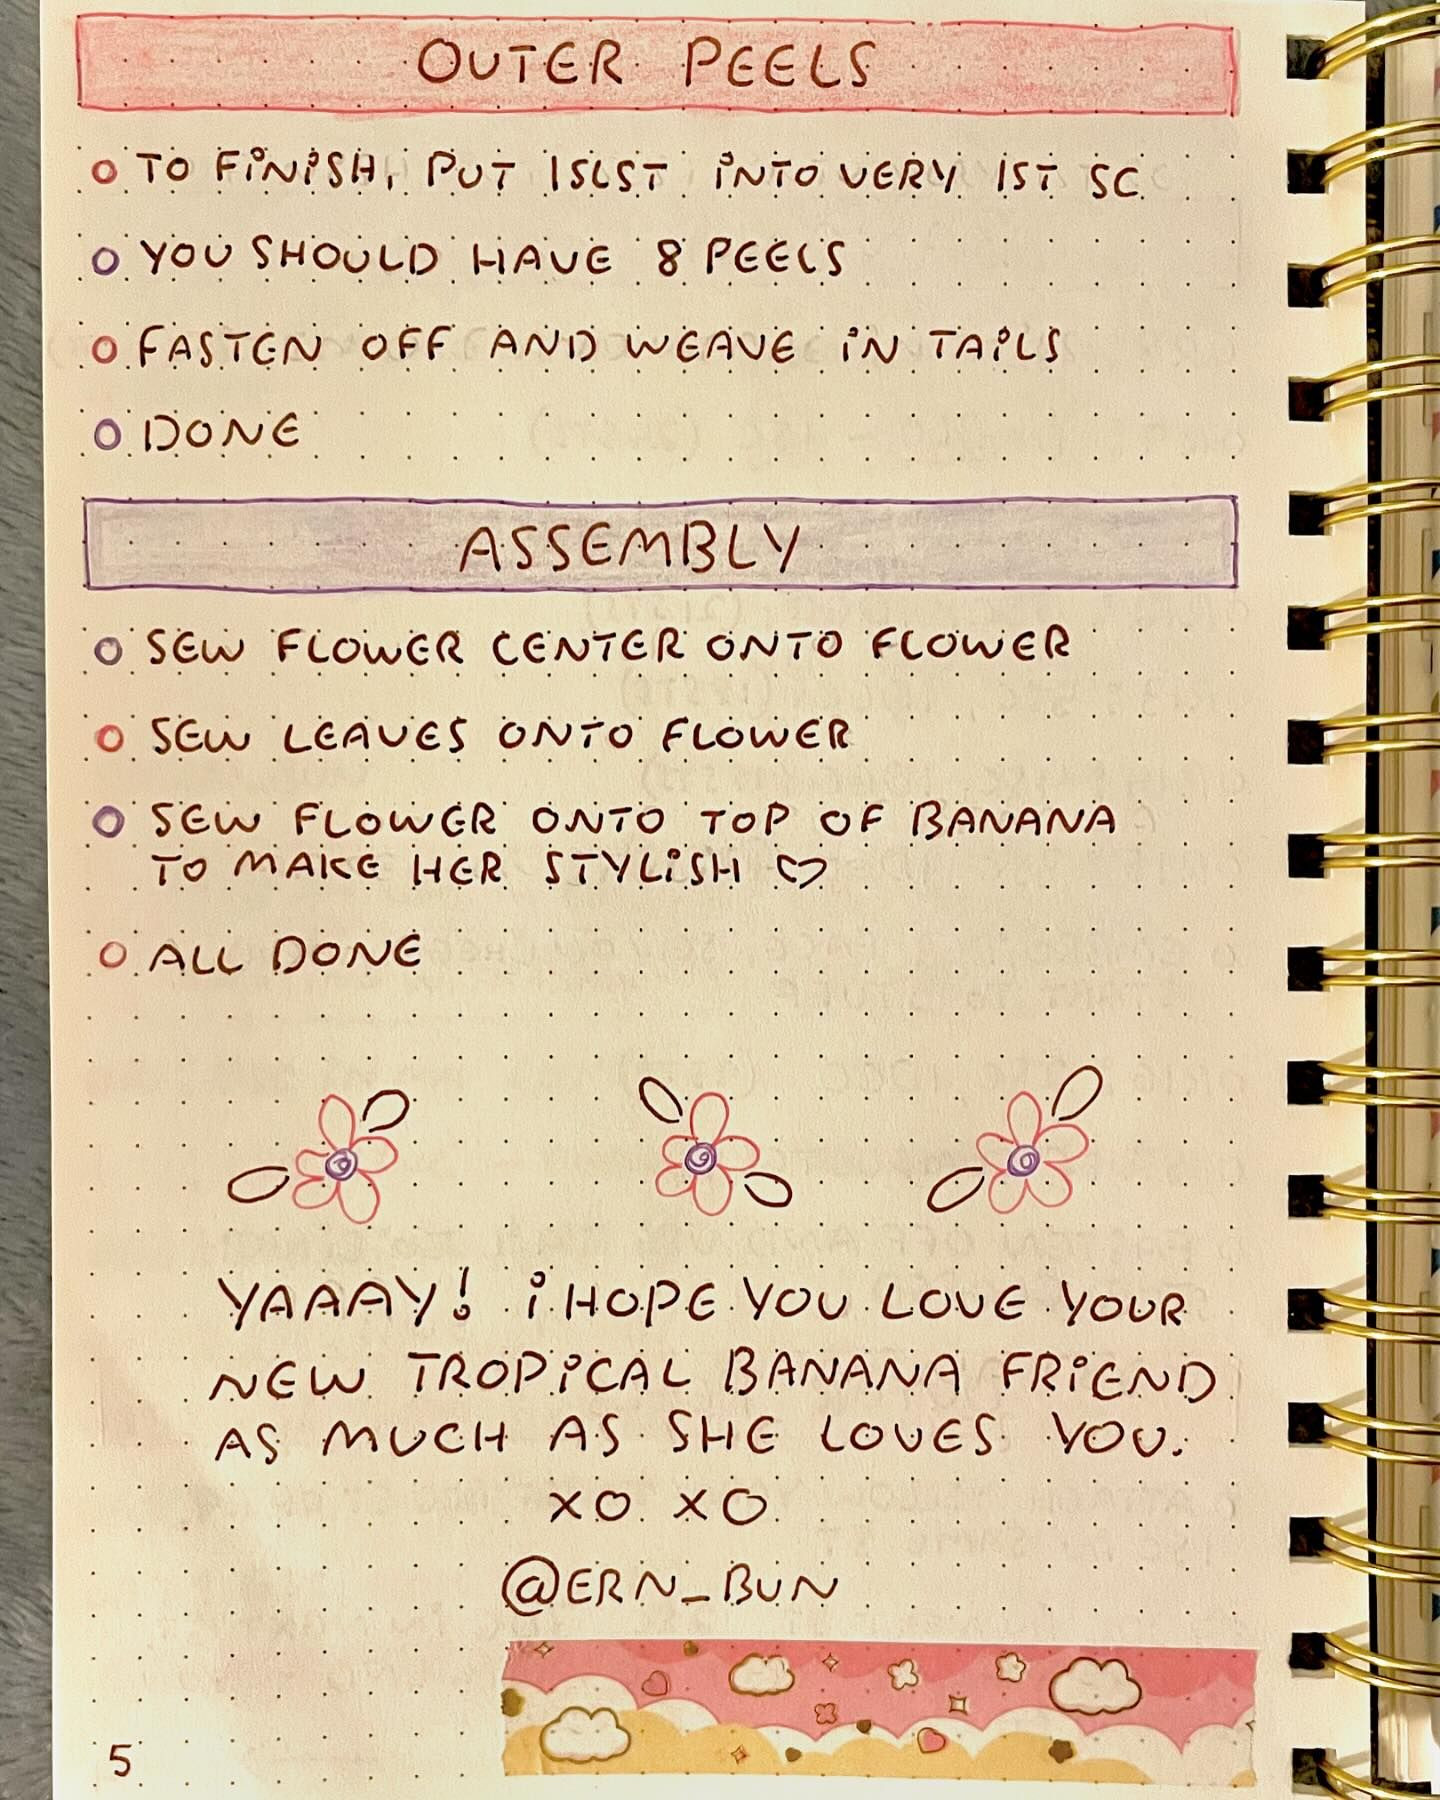 OUTER PEELS
TO FINISH, PUT 1SLST INTO VERY 1ST SC
YOU SHOULD HAVE 8 PEELS
FASTEN OFF AND WEAVE IN TAILS
DONE
ASSEMBLY
SEW FLOWER CENTER ONTO FLOWER
SEW LEAVES ONTO FLOWER
SEW FLOWER ONTO TOP OF BANANA
TO MAKE HER STYLISH ♡
ALL DONE
YAAAY! I HOPE YOU LOVE YOUR
NEW TROPICAL BANANA FRIEND
AS MUCH AS SHE LOVES YOU.
XO XO
@ERN_BUN
5